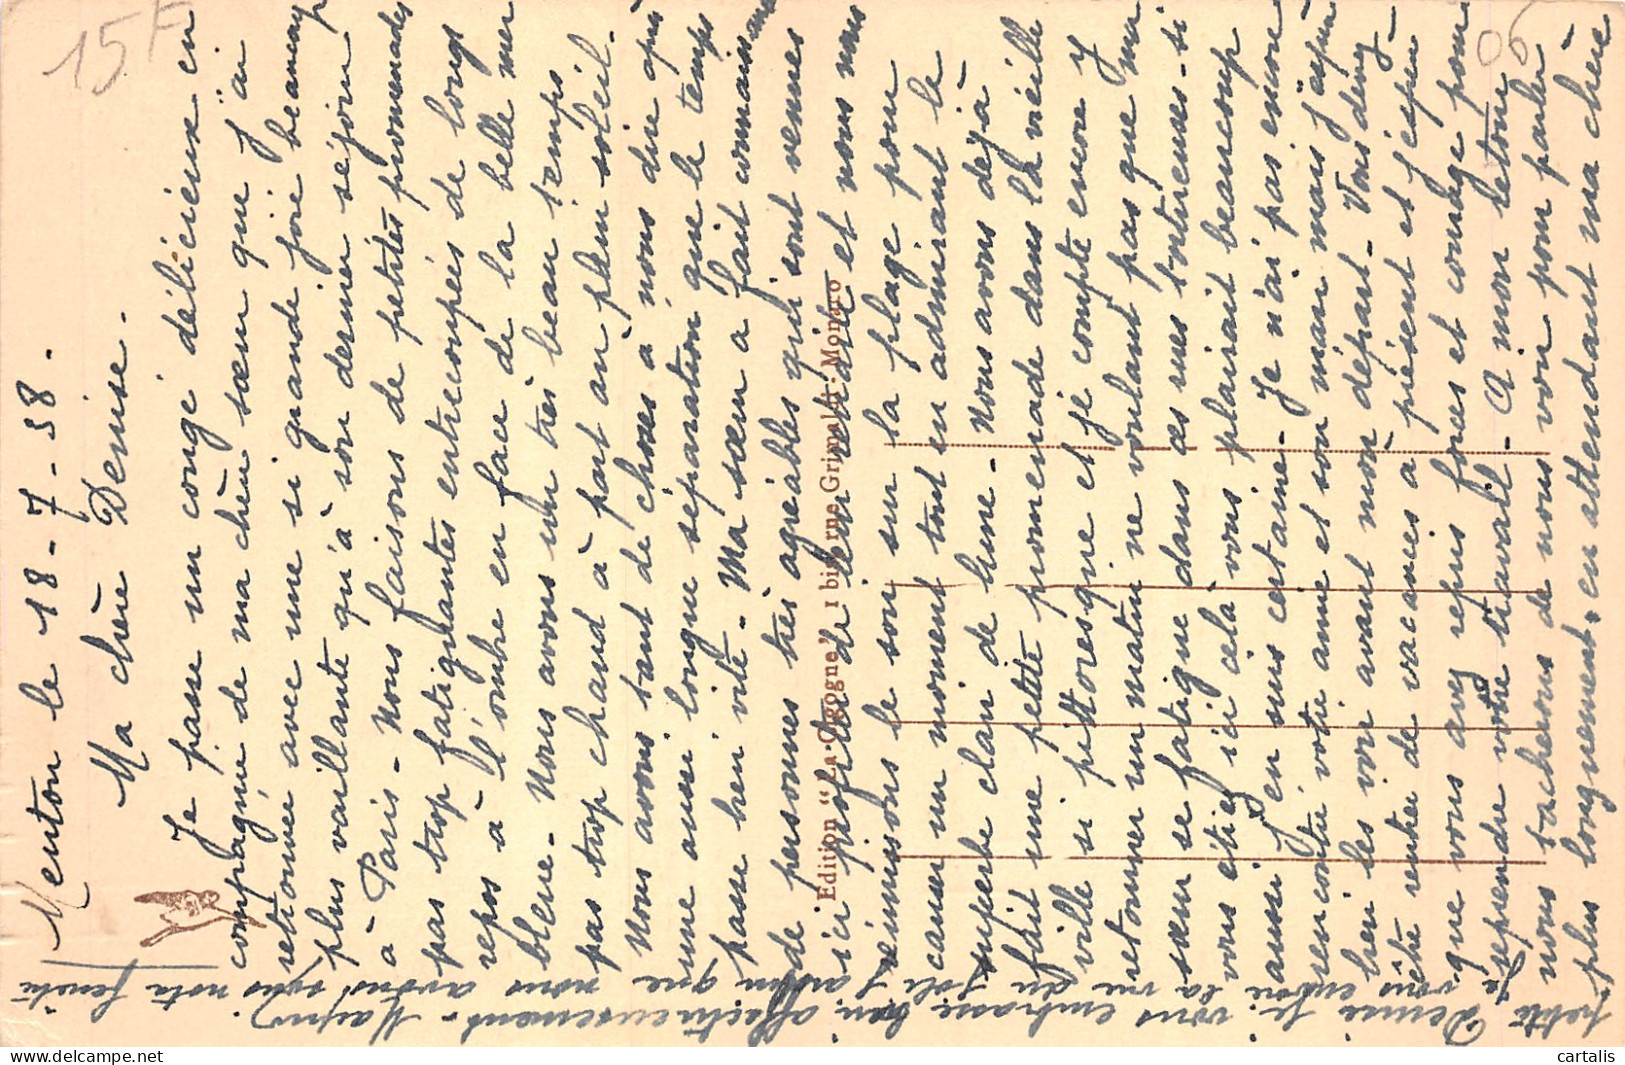 Menton le 18-7-38.
Ma chère Denise.
Je passe un congé délicieux en
compagnie de ma chère sœur que j'ai
retrouvée avec une si grande joie beaucoup
plus vaillante qu'à son dernier séjour
à Paris - Nous faisons de petites promenades
pas trop fatigantes entrecoupées de longs
repos à l'ombre en face de la belle mer
bleue - Nous avons un très beau temps
pas trop chaud à part au plein soleil.
Nous avons tant de choses à nous dire après
une aussi longue séparation que le temps
passe bien vite - Ma sœur a fait connaissance
de personnes très agréables qui sont venues
ici profiter de leur retraite et nous nous
réunissons le soir sur la plage pour
causer un moment tout en admirant le
superbe clair de lune - Nous avons déjà
fait une petite promenade dans la vieille
ville si pittoresque et je compte encore y
retourner un matin ne voulant pas que ma
sœur se fatigue dans ces rues tortueuses - si
vous étiez ici cela vous plairait beaucoup
aussi j'en suis certaine - Je n'ai pas encore
rencontré votre amie et son mari mais j'espère
bien les voir avant mon départ - Vous devez
être rentrée de vacances à présent et j'espère
que vous avez repris forces et courage pour
reprendre votre travail - A mon retour
nous tâcherons de nous voir pour parler
plus longuement, en attendant ma chère
petite Denise je vous embrasse bien affectueusement -
Je vous envoie la vue du joli jardin que nous avons sous notre fenêtre
15F
06
Edition "La Cigogne" 1 bis, rue Grimaldi - Monaco
cartalis